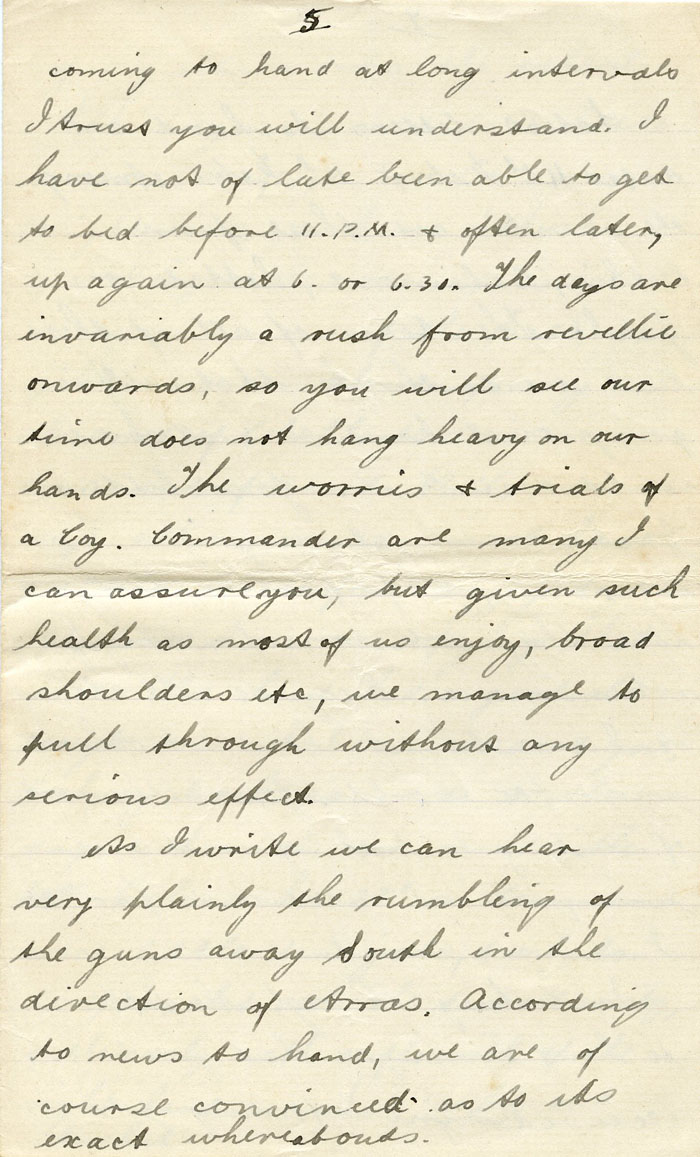 5
coming to hand at long intervals
I trust you will understand. I
have not of late been able to get
to bed before 11. P.M. & often later,
up again at 6. or 6.30. The days are
invariably a rush from revellie
onwards, so you will see our
time does not hang heavy on our
hands. The worries & trials of
a Coy. Commander are many I
can assure you, but given such
health as most of us enjoy, broad
shoulders etc, we manage to
pull through without any
serious effect.
As I write we can hear
very plainly the rumbling of
the guns away South in the
direction of Arras. According
to news to hand, we are of
course convinced as to its
exact whereabouts.